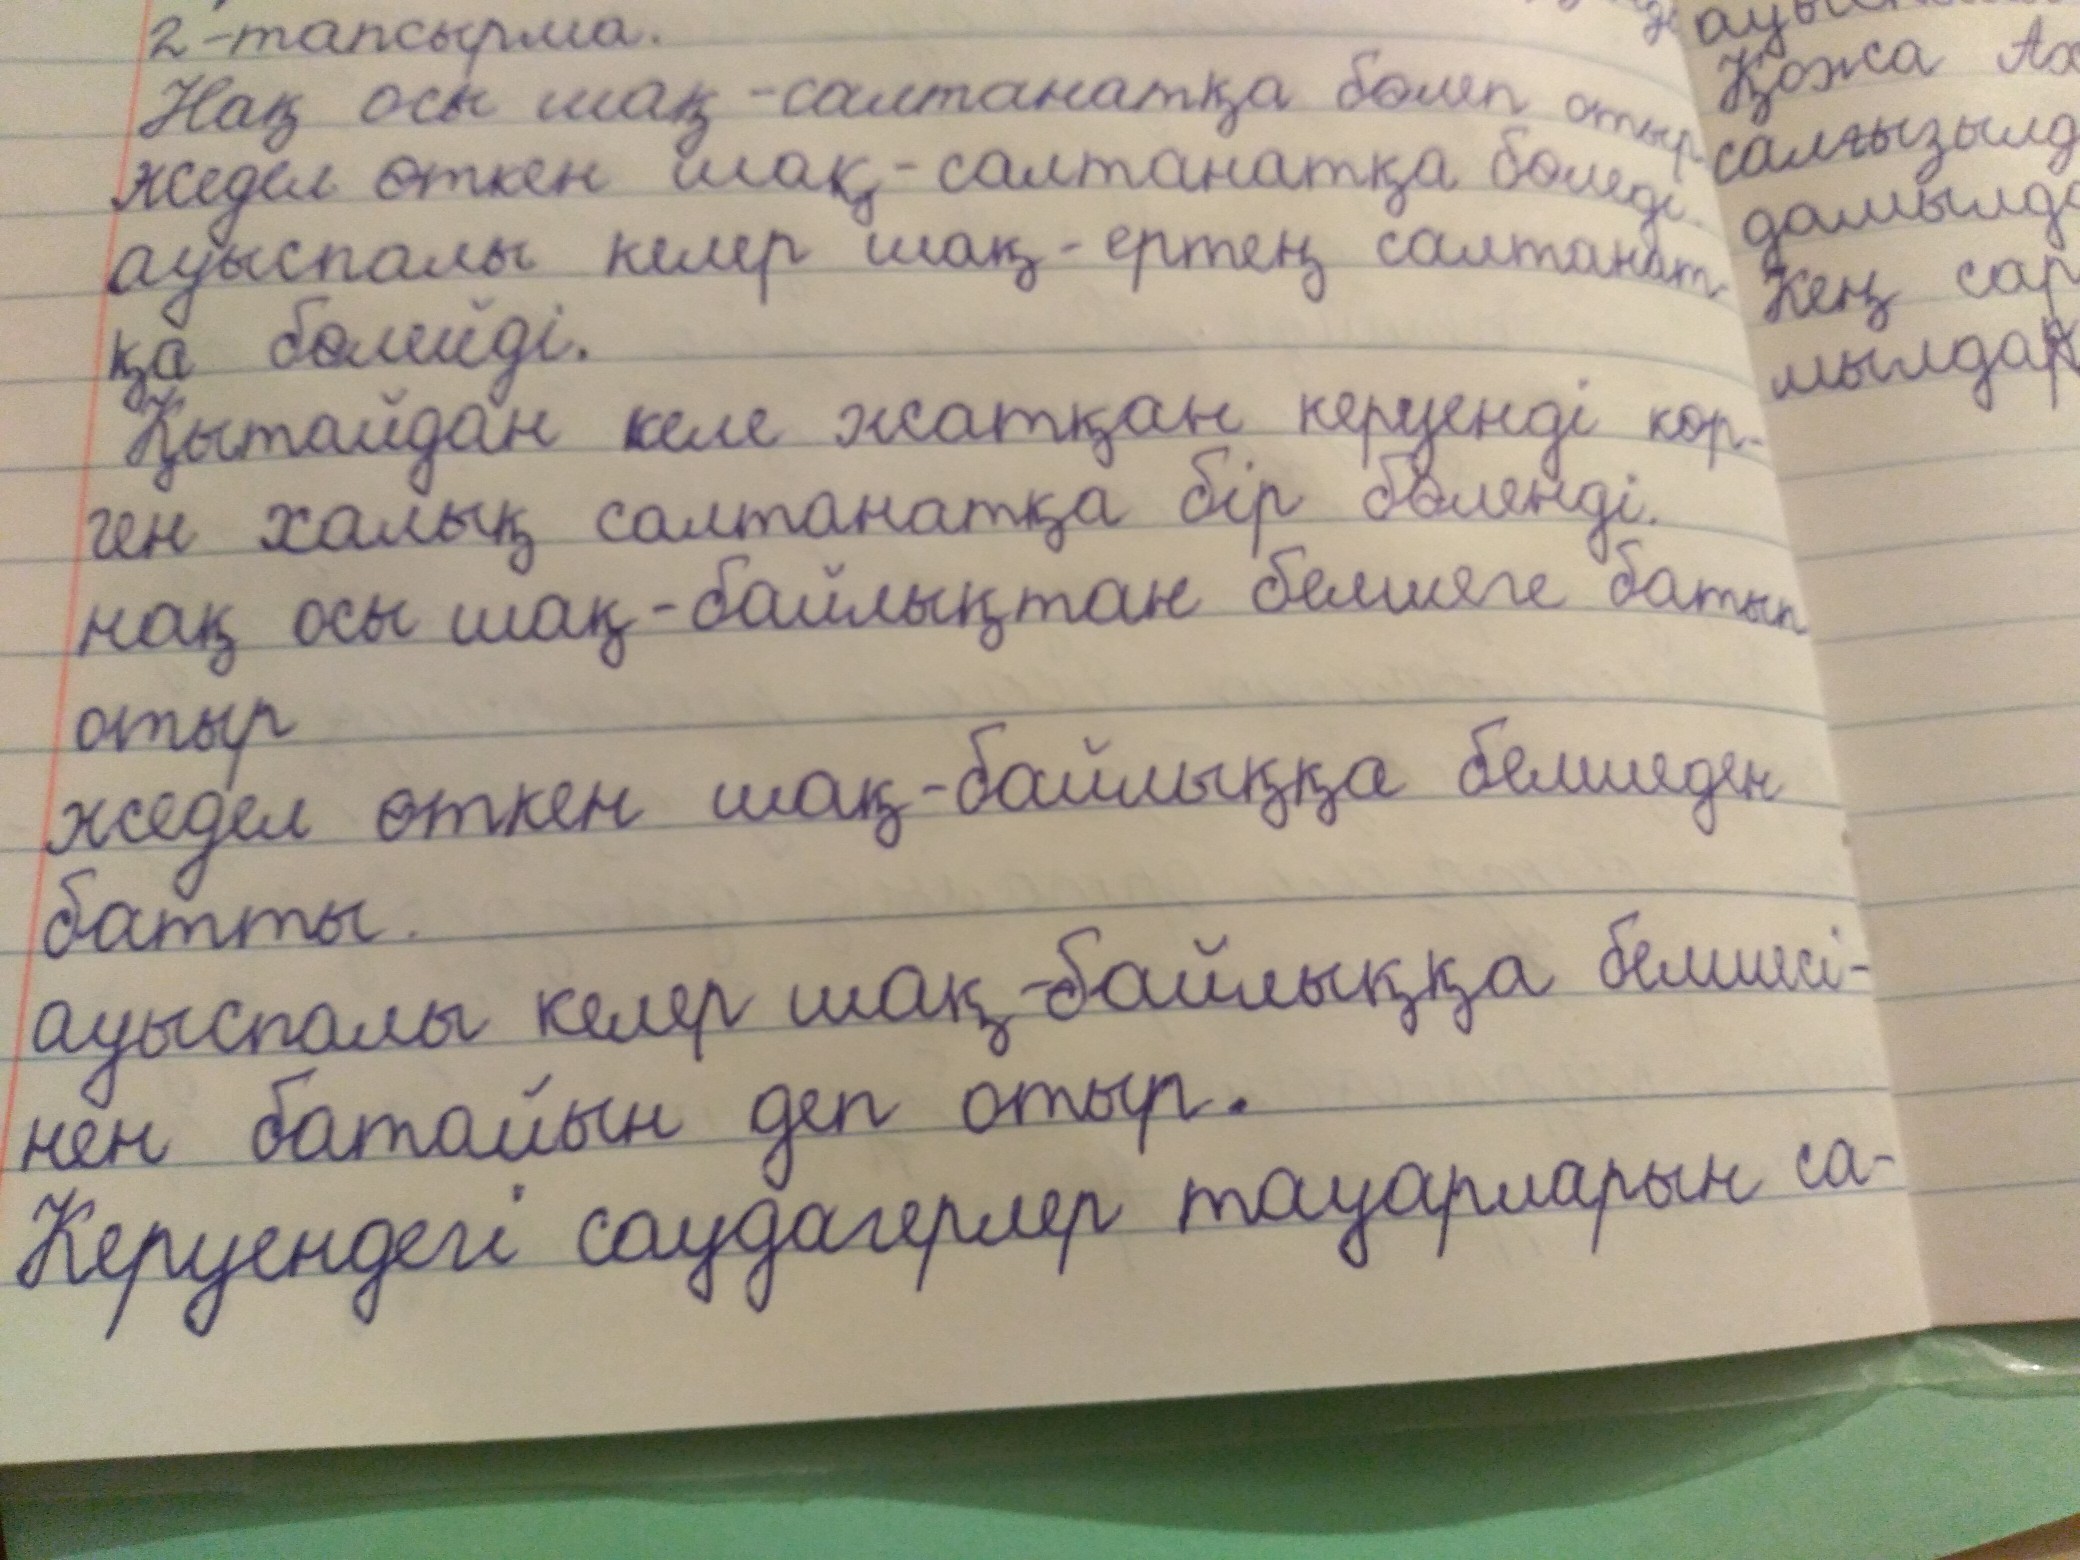 2-тапсырма.
Нақ осы шақ-салтанатқа бөлеп отыр
жедел өткен шақ-салтанатқа бөледі.
ауыспалы келер шақ-ертең салтанат
қа бөлейді.
Қытайдан келе жатқан керуенді көр-
ген халық салтанатқа бір бөленді.
нақ осы шақ-байлықтан белшеге батып
отыр
жедел өткен шақ-байлыққа белшеден
батты.
ауыспалы келер шақ-байлыққа белшесі-
нен батайын деп отыр.
Керуендегі саудагерлер тауарларын са-
Қожа Ах
салғызылд
дамылда
Кең сар
мылдар